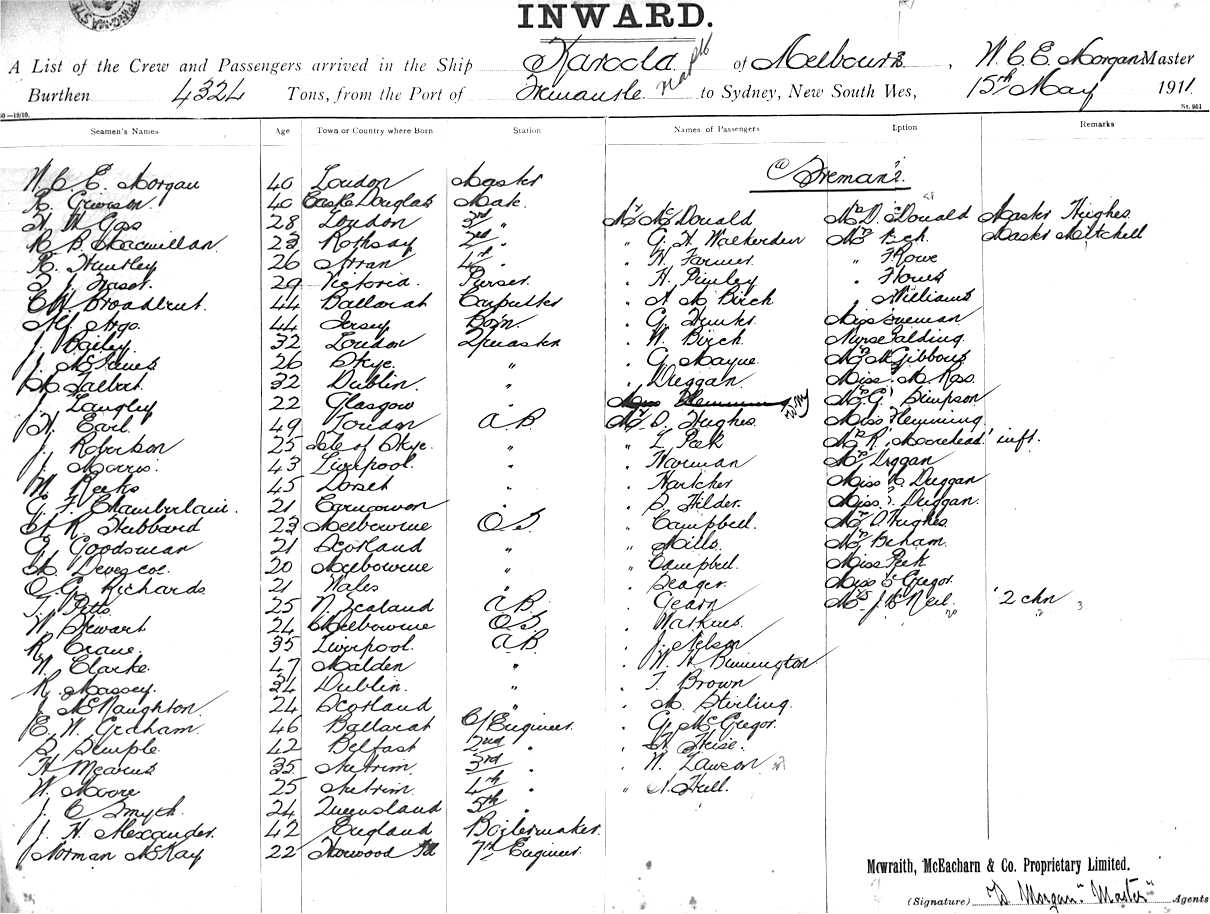 INWARD.
A List of the Crew and Passengers arrived in the Ship Karoola of Melbourne, W. C. E. Morgan Master
Burthen 4324 Tons, from the Port of Fremantle to Sydney, New South Wes, 15th May 1911
Seamen's Names Age Town or Country where Born Station Names of Passengers Eption Remarks
W. C. E. Morgan 40 London Master
Freman?
R. Grierson 40 Castle Douglas Mate
H. W. Gas 28 London 3rd " Mr McDonald Mrs Donald Master Hughes
R. B. Macmillan 23 Rothsay 2nd " " G. H. Walkerden Mrs Master Mitchell
R. Huntley 26 Arran 4th " " W. Farmer " F. Rowe
29 Victoria Purser " H. " Howes
Broadbent 44 Ballarat Carpenter " A. M. Birch " Williams
44 Jersey Bo'n. " G. Miss
J. Bailey 32 London Qmaster " W. Birch Nurse
J. 26 Skye " " G. Mayne Mrs McGibbons
M. Talbert 32 Dublin " " Duggan Miss M. Ross
J. Langley 22 Glasgow " Miss Mrs G. Simpson
H. Earl 49 London A.B. Mr D. Hughes Miss Flemming
J. Robertson 25 Isle of Skye " " Peek Mrs R. Moorehead inft.
J. Morris 43 Liverpool " " Harman Mrs Duggan
W. Reeks 45 Dorset " " Miss Duggan
G. F. Chamberlain 21 Carnarvon " " S. Hilder Miss Duggan
A. R. Hubbard 23 Melbourne O.S. " Campbell Mrs D. Hughes
G. Goodsman 21 Scotland " " Mills Mrs Benham
20 Melbourne " " Campbell Miss Peek
O. G. Richards 21 Wales " " Seager Miss Gregor
T. Potts 25 N. Zealand A.B. " Geary Mrs J. Neil 2 chn
W. Stewart 24 Melbourne O.S. " Watkins
R. Crane 35 Liverpool A.B. " J. Nelson
W. Clarke 47 Maldon " " W. H. Binnington
R. Massey 34 Dublin " " T. Brown
J. McNaughton 24 Scotland " " M. Stirling
E. W. Graham 46 Ballarat C/Engineer " G. McGregor
S. Semple 42 Belfast 2nd " " Heise
H. Mearns 35 Antrim 3rd " " W. Lawson
W. Moore 25 Antrim 4th " " Hull
J. C. Smyth 24 Queensland 5th "
J. H. Alexander 42 England Boilermaker
Norman McKay 22 Norwood 7th Engineer
Mcwraith, McEacharn & Co. Proprietary Limited.
(Signature) Morgan "Master" Agents